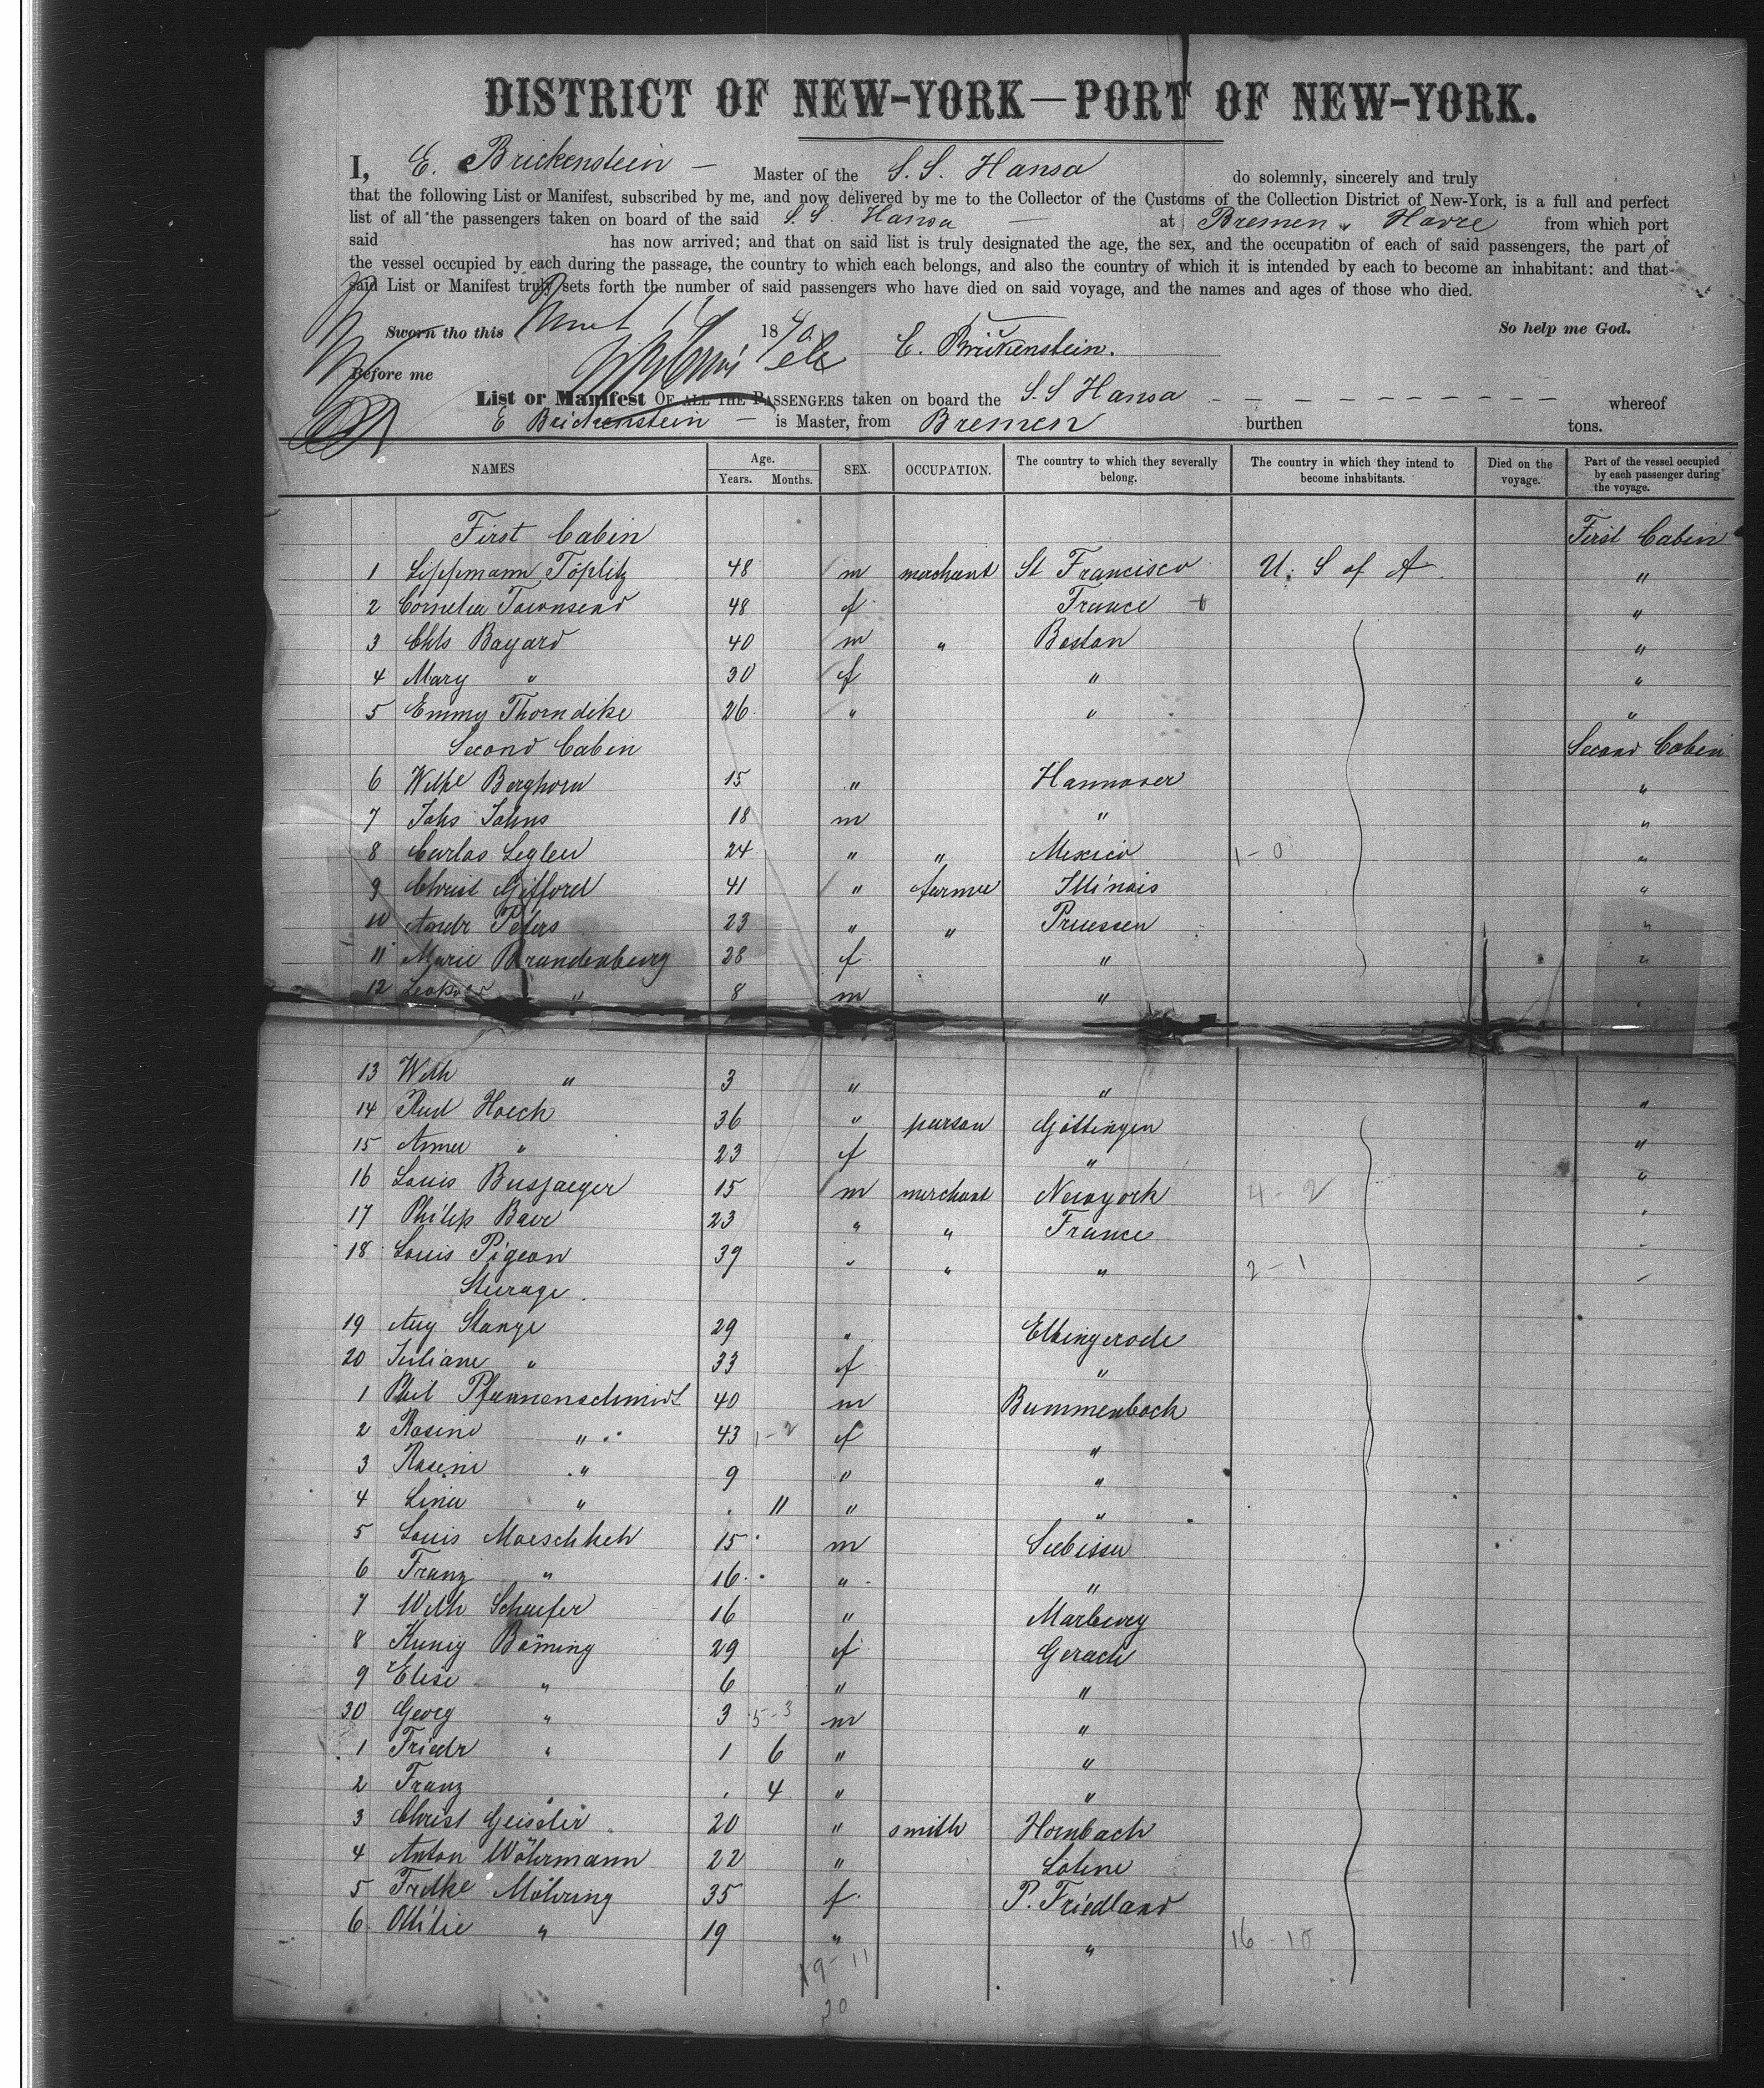 DISTRICT OF NEW-YORK—PORT OF NEW-YORK.
I, E. Brickenstein — Master of the S. S. Hansa do solemnly, sincerely and truly
that the following List or Manifest, subscribed by me, and now delivered by me to the Collector of the Customs of the Collection District of New-York, is a full and perfect
list of all the passengers taken on board of the said S. S. Hansa — at Bremen & Havre from which port
said has now arrived; and that on said list is truly designated the age, the sex, and the occupation of each of said passengers, the part of
the vessel occupied by each during the passage, the country to which each belongs, and also the country of which it is intended by each to become an inhabitant: and that
said List or Manifest truly sets forth the number of said passengers who have died on said voyage, and the names and ages of those who died.
So help me God.
Sworn tho this 18 E. Brickenstein.
Before me
List or Manifest OF ALL THE PASSENGERS taken on board the S. S Hansa whereof
E Brickenstein — is Master, from Bremen burthen tons.
NAMES Age. Years. Months. SEX. OCCUPATION. The country to which they severally belong. The country in which they intend to become inhabitants. Died on the voyage. Part of the vessel occupied by each passenger during the voyage.
First Cabin First Cabin
1 Lippmann Töplitz 48 m merchant St Francisco U. S of A "
2 Cornelia Townsend 48 f France "
3 Chls Bayard 40 m " Boston "
4 Mary " 30 f " "
5 Emmy Thorndike 26 " " "
Second Cabin Second Cabin
6 Wilhe Berghorn 15 " Hannover "
7 Johs Johns 18 m " "
8 Carlos 24 " " Mexico 1-0 "
9 Christ Gifford 41 " farmer Illinois "
10 Andr Peters 23 " " Preussen "
11 Marie Brandenburg 28 f " "
12 " 8 m "
13 Wilh " 3 " " "
14 Rud Hoech 36 " parson Göttingen "
15 Anna " 23 f " "
16 Louis Busjaeger 15 m merchant Newyork 4-2 "
17 Philip Baer 23 " " France
18 Louis Pigeon 39 " " " 2-1
Steerage
19 Aug Stange 29 " Elbingerode
20 Juliane " 33 f "
1 Phil Pfannenschmidt 40 m Bummenbach
2 Rosine " 43 1-2 f "
3 Rosine " 9 " "
4 Lina " 11 " "
5 Louis Maeschkeh 15 m
6 Franz " 16 " "
7 Wilh Schaefer 16 " Marburg
8 Kunig Böming 29 f Gerach
9 Elise " 6 " "
30 Georg " 3 5-3 m "
1 Friedr " 1 6 " "
2 Franz " 4 " "
3 Christ Geissler 20 " smith Hornbach
4 Anton Wöhrmann 22 " Lohne
5 Fredke Möhring 35 f P. Friedland
6 Ottilie " 19 " " 16-10
19-11
20